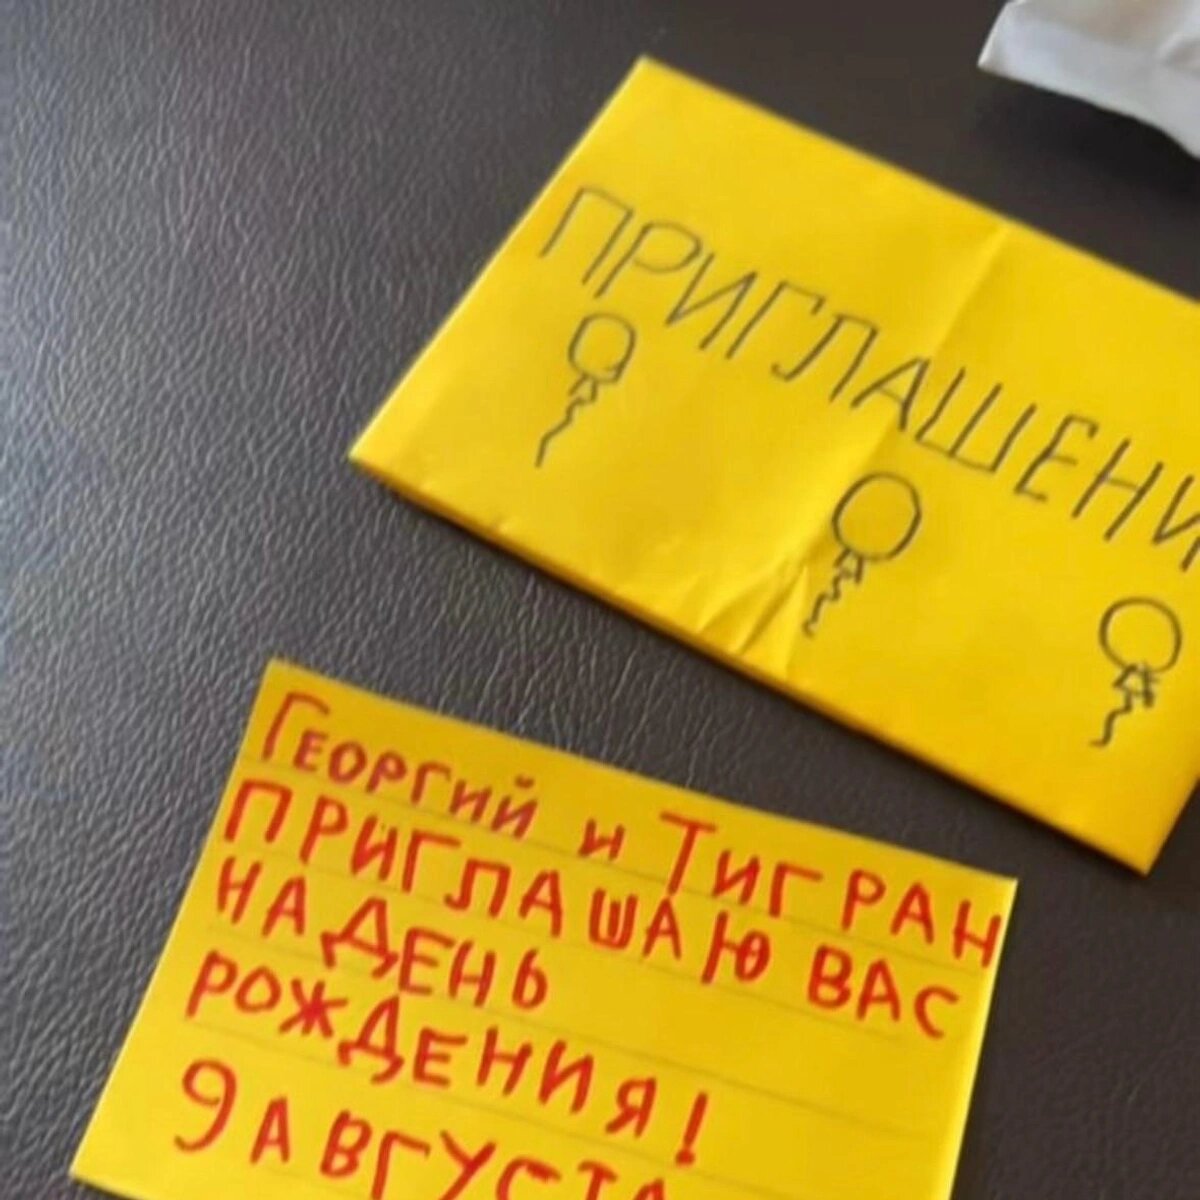 ПРИГЛАШЕНИ
Георгий и Тигран
ПРИГЛАШАЮ ВАС
НА ДЕНЬ
РОЖДЕНИЯ!
9 АВГУСТА